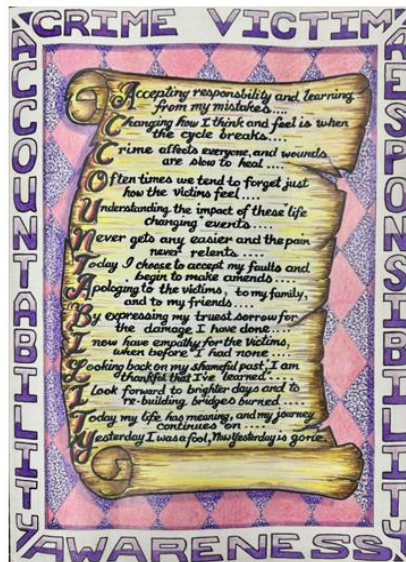 CRIME VICTIM
ACCOUNTABILITY
Accepting responsbility and learning
from my mistakes....
Changing how I think and feel is when
the cycle breaks....
Crime affects everyone, and wounds
are slow to heal....
Often times we tend to forget just
how the victims feel....
Understanding the impact of these "life
changing" events....
Never gets any easier and the pain
never relents....
Today I choose to accept my faults and
begin to make amends....
Apologing to the victims, to my family,
and to my friends....
By expressing my truest sorrow for
the damage I have done....
I now have empathy for the victims,
when before I had none....
Looking back on my shameful past, I am
thankful that I've learned....
I look forward to brighter days and to
re-building bridges burned....
Today my life has meaning, and my journey
continues on....
Yesterday I was a fool, Now Yesterday is gone.
RESPONSIBILITY
AWARENESS